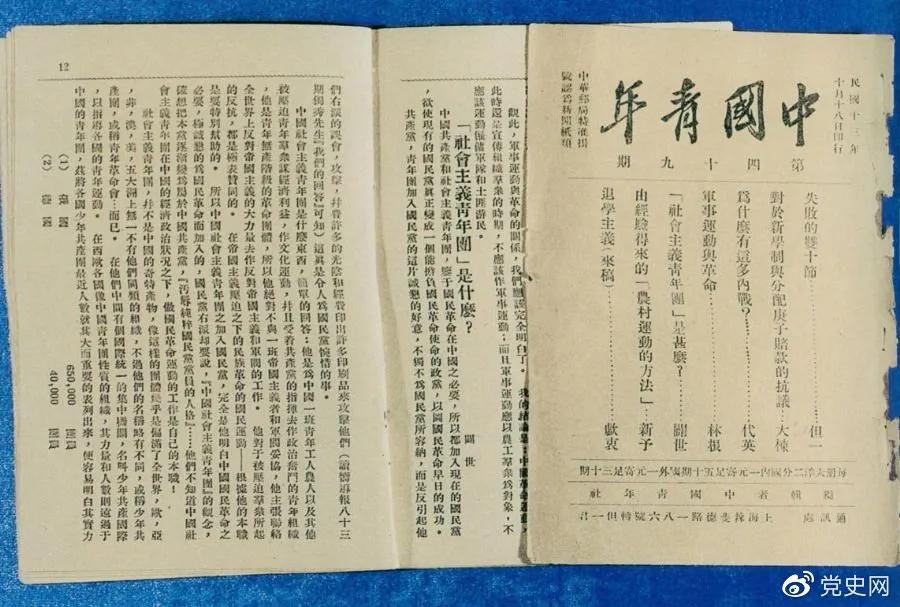 民國十三年
十月十八日印行
中國青年
第四十九期
中華郵局特准掛
號認爲新聞紙類
失敗的雙十節…………但一
對於新學制與分配庚子賠款的抗議…大悚
爲什麼有這多內戰?…………代英
軍事運動與革命…………林根
「社會主義青年團」是甚麼?……闢世
由經驗得來的「農村運動的方法」…新予
退學主義(來稿)…………獻衷
每期大洋二分國內一元寄足五十期國外一元寄足三十期
編輯者中國青年社
通訊處 上海辣斐德路一八六號轉但一君
觀此,軍事運動與革命的關係,我們應該完全明白了。我的結論是:中國革命運動,
此時還是宣傳組織羣衆的時期,不應該作軍事運動;而且軍事運動應以農工羣衆爲對象,不
應該運動僱傭軍隊和土匪游民。
「社會主義青年團」是什麼?
闢世
中國共產黨和社會主義青年團,鑒于國民革命在中國之必要,所以都加入現在的國民黨
,欲使現有的國民黨眞正變成一個能擔負國民革命使命的政黨,以圖國民革命早日的成功。
共產黨,青年團加入國民黨的這片誠懇的好意,不獨不爲國民黨所容納,而是反引起他
12
們右派的誤會,攻擊,幷費許多的光陰和經費印出許多印刷品來攻擊他們(讀嚮導報八十三
期獨秀先生『我們的回答』可知)這眞是令人爲國民黨惋惜的事。
中國社會主義青年團是什麼東西,簡單的回答:他是爲中國一班青年工人農人以及其他
被壓迫青年羣衆謀經濟利益,作文化運動,幷且受着共產黨的指揮去作政治奮鬥的青年組織
,他是青年無產階級的革命團體,所以他絕對不與一班帝國主義者和軍閥妥協,他主張聯絡
全世界上反對帝國主義的大力量去作反對帝國主義和軍閥的工作。他對于被壓迫羣衆所起
的反抗,都是極表贊同的。在帝國主義壓迫之下的民族革命的國民運動──根據他的本職
是要特別幫助的。所以中國社會主義青年團之加入國民黨,完全是他明白中國國民革命之
必要,極誠懇的爲國民革命而加入的,國民黨右派却要說,『中國社會主義青年團』的觀念,
確想把本黨逐漸變爲屬於中國共產黨,『汚辱純粹國民黨黨員的人格』……他們不知道中國社
會主義青年團在中國的經濟政治狀況之下,做國民革命運動的工作是自己的本職!
社會主義青年團,幷不是中國的奇特產物,像這樣的團體幾乎是偏滿了全世界,歐,亞
,非,澳,美,五大洲上無一不有他們同類的組織,不過他們的名稱略有不同,或稱少年共
產團,或稱青年革命會…而已。在他們中間有個國際統一的集中機關,名叫少年共產國際
,以指導各國的青年運動。在西歐各國像中國青年團性質的組織,其力量和人數則遠過于
中國的青年團,茲將各國少年共產團最近人數就其大而重要的表列出來,便容易明白其實力
(1) 650,000 團員
(2) 40,000 團員
党史网